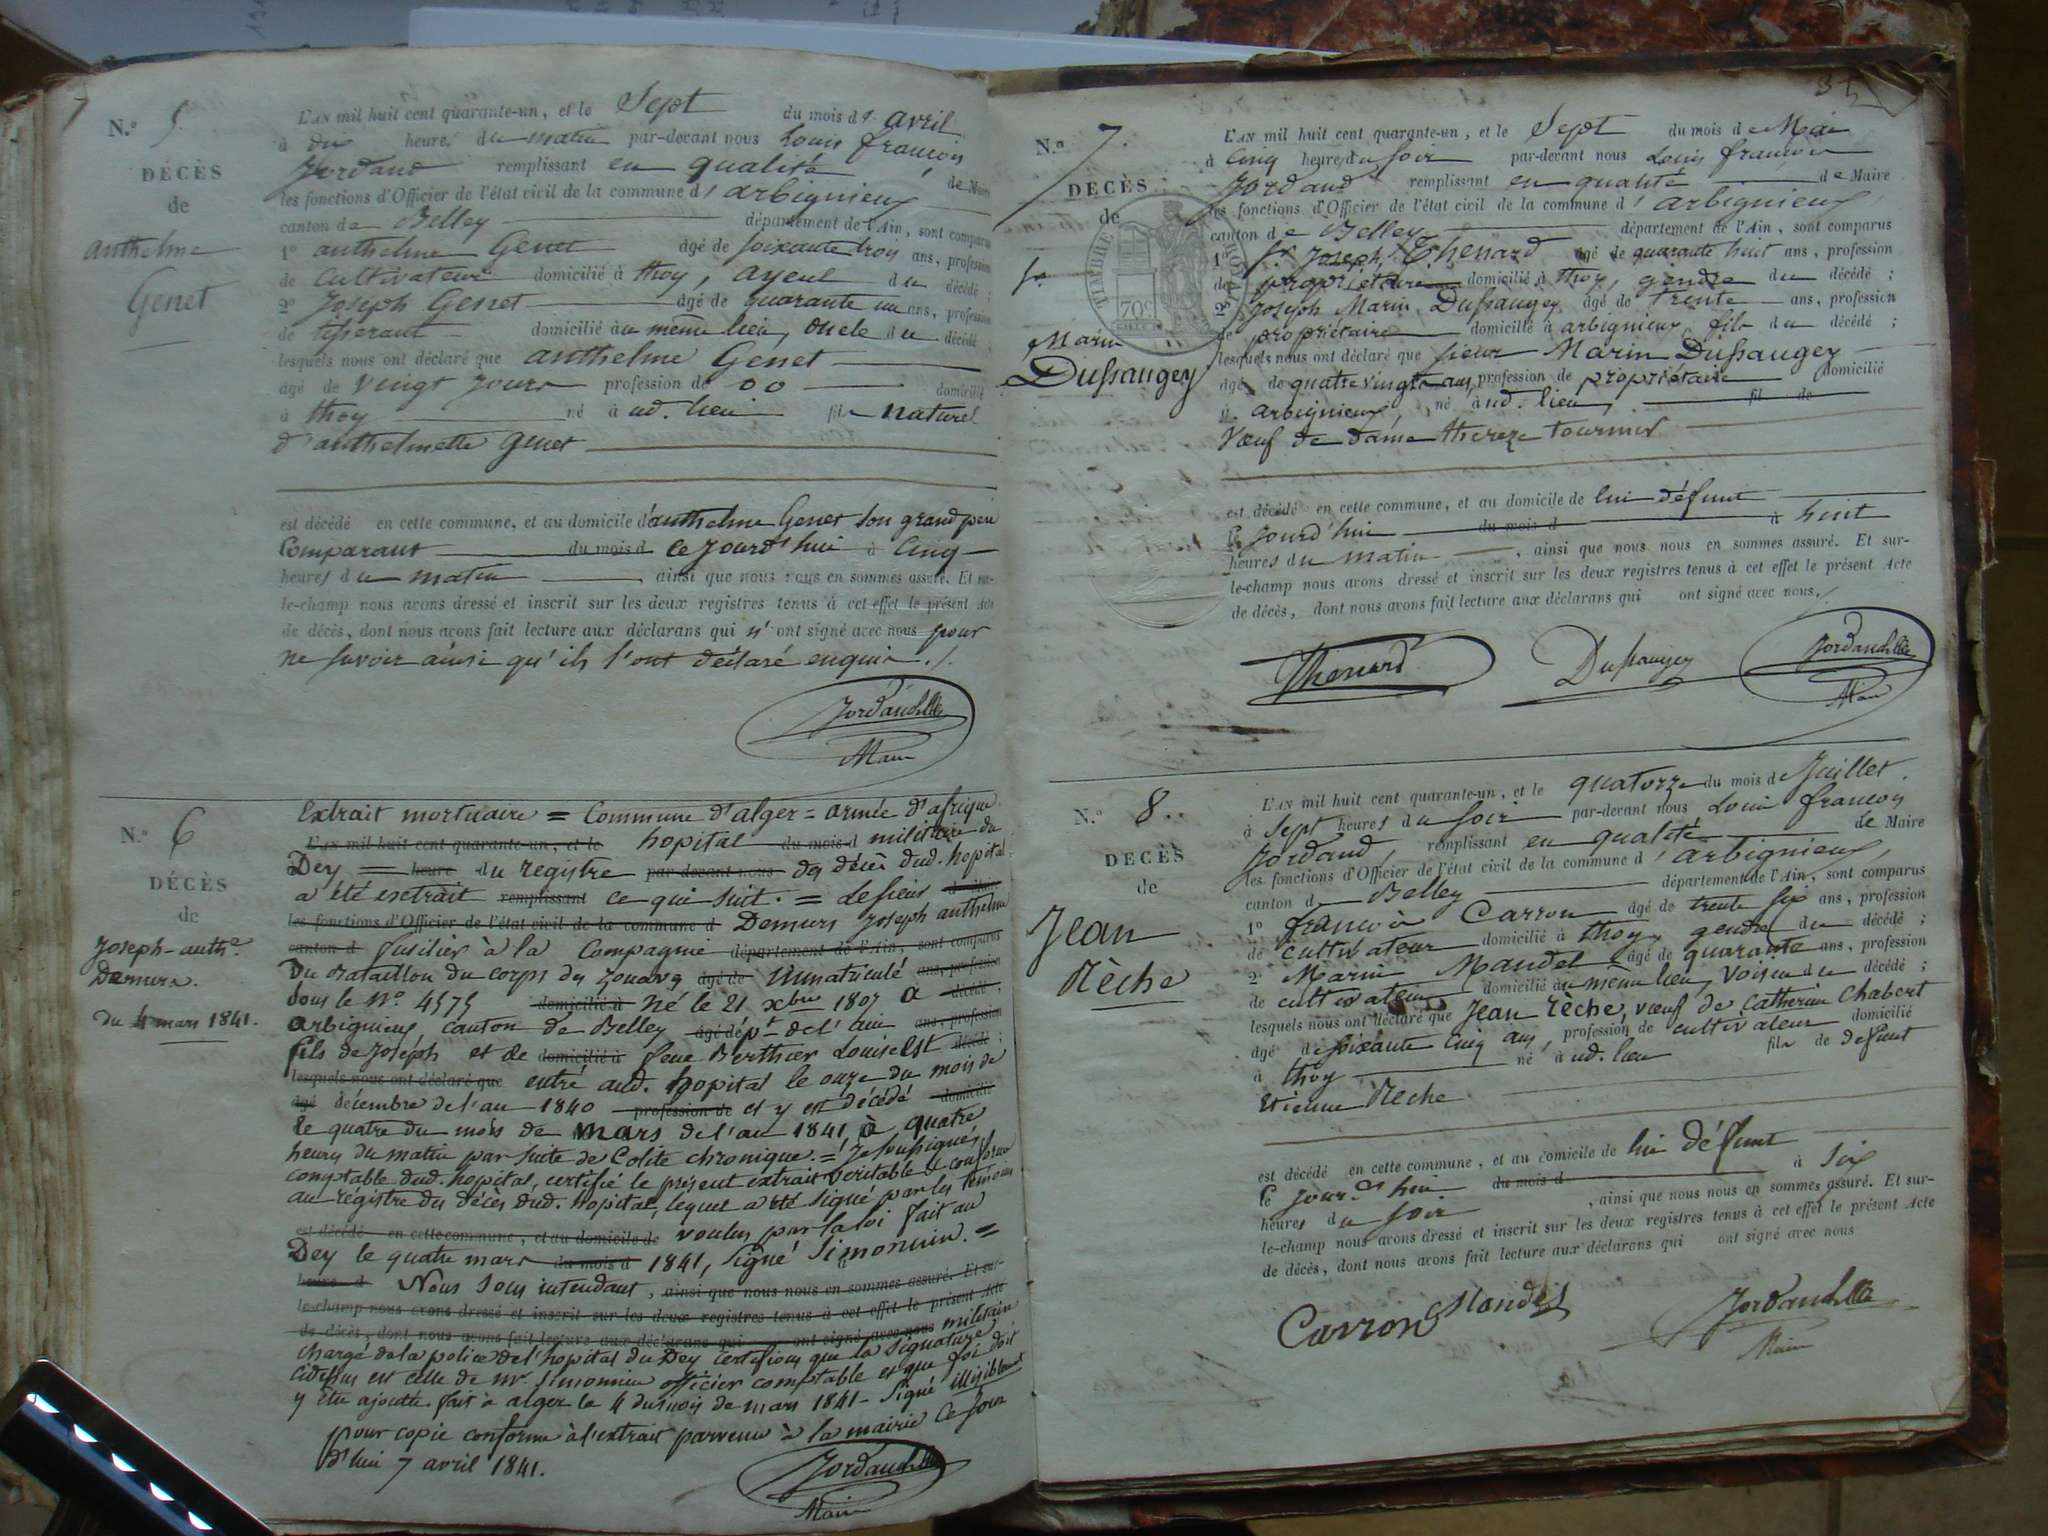 N.º 5
DÉCÈS
de
anthelme
Genet
L'AN mil huit cent quarante-un, et le Sept du mois d' avril
à dix heure, du matin par-devant nous Louis françois
Jordand remplissant en qualité de Maire
les fonctions d'Officier de l'état civil de la commune d'arbignieux
canton de Belley département de l'Ain, sont comparus
1º anthelme Genet âgé de soixante trois ans, profession
de Cultivateur domicilié à thoy, ayeul du décédé ;
2º Joseph Genet âgé de quarante un ans, profession
de tisserant domicilié au même lieu, oncle du décédé
lesquels nous ont déclaré que anthelme Genet
âgé de vingt jours profession de oo domicilié
à thoy né à ud. lieu fils naturel
d'anthelmette Genet
est décédé en cette commune, et au domicile d'anthelme Genet son grand pere
Comparant du mois d ce jourd'hui à Cinq
heures du matin ainsi que nous nous en sommes assuré. Et sur-
le-champ nous avons dressé et inscrit sur les deux registres tenus à cet effet le présent Acte
de décès, dont nous avons fait lecture aux déclarans qui n'ont signé avec nous pour
ne savoir ainsi qu'ils l'ont déclaré enquis ./.
Maire
N.º 6
DÉCÈS
de
Joseph-anthe
Demurs.
du 4 mars 1841.
Extrait mortuaire = Commune d'alger = armée d'afrique
L'AN mil huit cent quarante-un, et le hopital du mois d militaire du
Dey = heure du registre par devant nous des décès dud. hopital
a été extrait remplissant ce qui suit. = Le sieur
les fonctions d'Officier de l'état civil de la commune d Demurs Joseph anthelme
canton d fusilier à la Compagnie département de l'Ain, sont comparus
du Bataillon du corps des zouaves âgé de immatriculé ans, profession
sous le Nº 4575 domicilié à Né le 21 Xbre 1807 a décédé ;
arbignieux, canton de Belley âgé dépt de l'ain ans, profession
fils de Joseph et de domicilié à feue Berthier Louise est décédé ;
lesquels nous ont déclaré que entré aud. hopital le onze du mois de
âgé décembre de l'an 1840 profession de et y est décédé domicilié
le quatre du mois de mars de l'an 1841 à quatre
heures du matin par suite de Colite chronique. = Je soussigné
comptable dud. hopital, certifié le présent extrait véritable et conforme
au registre des décès dud. hopital, lequel a été signé par les témoins
est décédé en cette commune, et au domicile de voulus par la loi fait au
Dey le quatre mars du mois d 1841, signé Simonnin. =
heure d Nous sous intendant, ainsi que nous nous en sommes assuré. Et sur-
le-champ nous avons dressé et inscrit sur les deux registres tenus à cet effet le présent Acte
de décès, dont nous avons fait lecture aux déclarans qui ont signé avec nous militaire
chargé de la police de l'hopital du Dey certifions que la signature
cidessus est celle de mr. Simonnin officier comptable et que foi doit
y être ajoutée. fait à alger le 4 du mois de mars 1841 - Signé illisiblement
pour copie conforme à l'extrait parvenu à la mairie ce jour
d'hui 7 avril 1841.
Maire
35
N.º 7.
DECÈS
de
sr
Marin
Dussaugey
TIMBRE ROYAL
70c
L'AN mil huit cent quarante-un, et le Sept du mois de Mai
à Cinq heures du soir par-devant nous Louis françois
Jordand remplissant en qualité de Maire
les fonctions d'Officier de l'état civil de la commune d'arbignieux
canton de Belley département de l'Ain, sont comparus
1º sr Joseph Thenard âgé de quarante huit ans, profession
de propriétaire domicilié à thoy, gendre du décédé ;
2º Joseph Marin Dussaugey âgé de trente ans, profession
de propriétaire domicilié à arbignieux fils du décédé ;
lesquels nous ont déclaré que sieur Marin Dussaugey
âgé de quatre vingts ans, profession de propriétaire domicilié
à arbignieux, né à ud. lieu, fil de
Vœuf de dame thereze tournier
est décédé en cette commune, et au domicile de lui défunt
le jourd'hui du mois d à huit
heures du matin, ainsi que nous nous en sommes assuré. Et sur-
le-champ nous avons dressé et inscrit sur les deux registres tenus à cet effet le présent Acte
de décès, dont nous avons fait lecture aux déclarans qui ont signé avec nous ./.
Thenard Dussaugey
Maire
N.º 8..
DECÈS
de
Jean
Rèche
L'AN mil huit cent quarante-un, et le quatorze du mois de Juillet.
à Sept heures du soir par-devant nous Louis françois
Jordand, remplissant en qualité de Maire
les fonctions d'Officier de l'état civil de la commune d'arbignieux,
canton d Belley département de l'Ain, sont comparus
1º françois Carron âgé de trente six ans, profession
de cultivateur domicilié à thoy, gendre du décédé ;
2 Marin Mandel âgé de quarante ans, profession
de cultivateur domicilié au même lieu, voisin du décédé ;
lesquels nous ont déclaré que Jean Rèche, vœuf de Catherine Chabert
âgé de soixante cinq ans, profession de cultivateur domicilié
à thoy né à ud. lieu fils de défunt
Etienne Rèche
est décédé en cette commune, et au domicile de lui défunt
le jourd'hui du mois d à six
heures du soir, ainsi que nous nous en sommes assuré. Et sur-
le-champ nous avons dressé et inscrit sur les deux registres tenus à cet effet le présent Acte
de décès, dont nous avons fait lecture aux déclarans qui ont signé avec nous
Carron Mandel
Maire